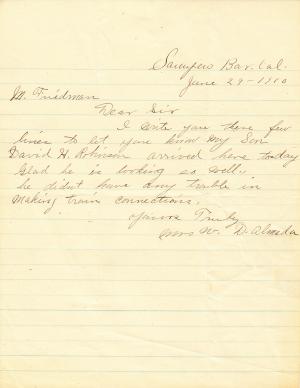 Sawyers Bar. Cal.
June 29 - 1910
M. Friedman
Dear Sir
I write you these few
lines to let you know my Son
David H. Robinson arrived here today
Glad he is looking so well.
he didnt have any trouble in
making train connections.
Yours Truly
Mrs W. D. Almeda